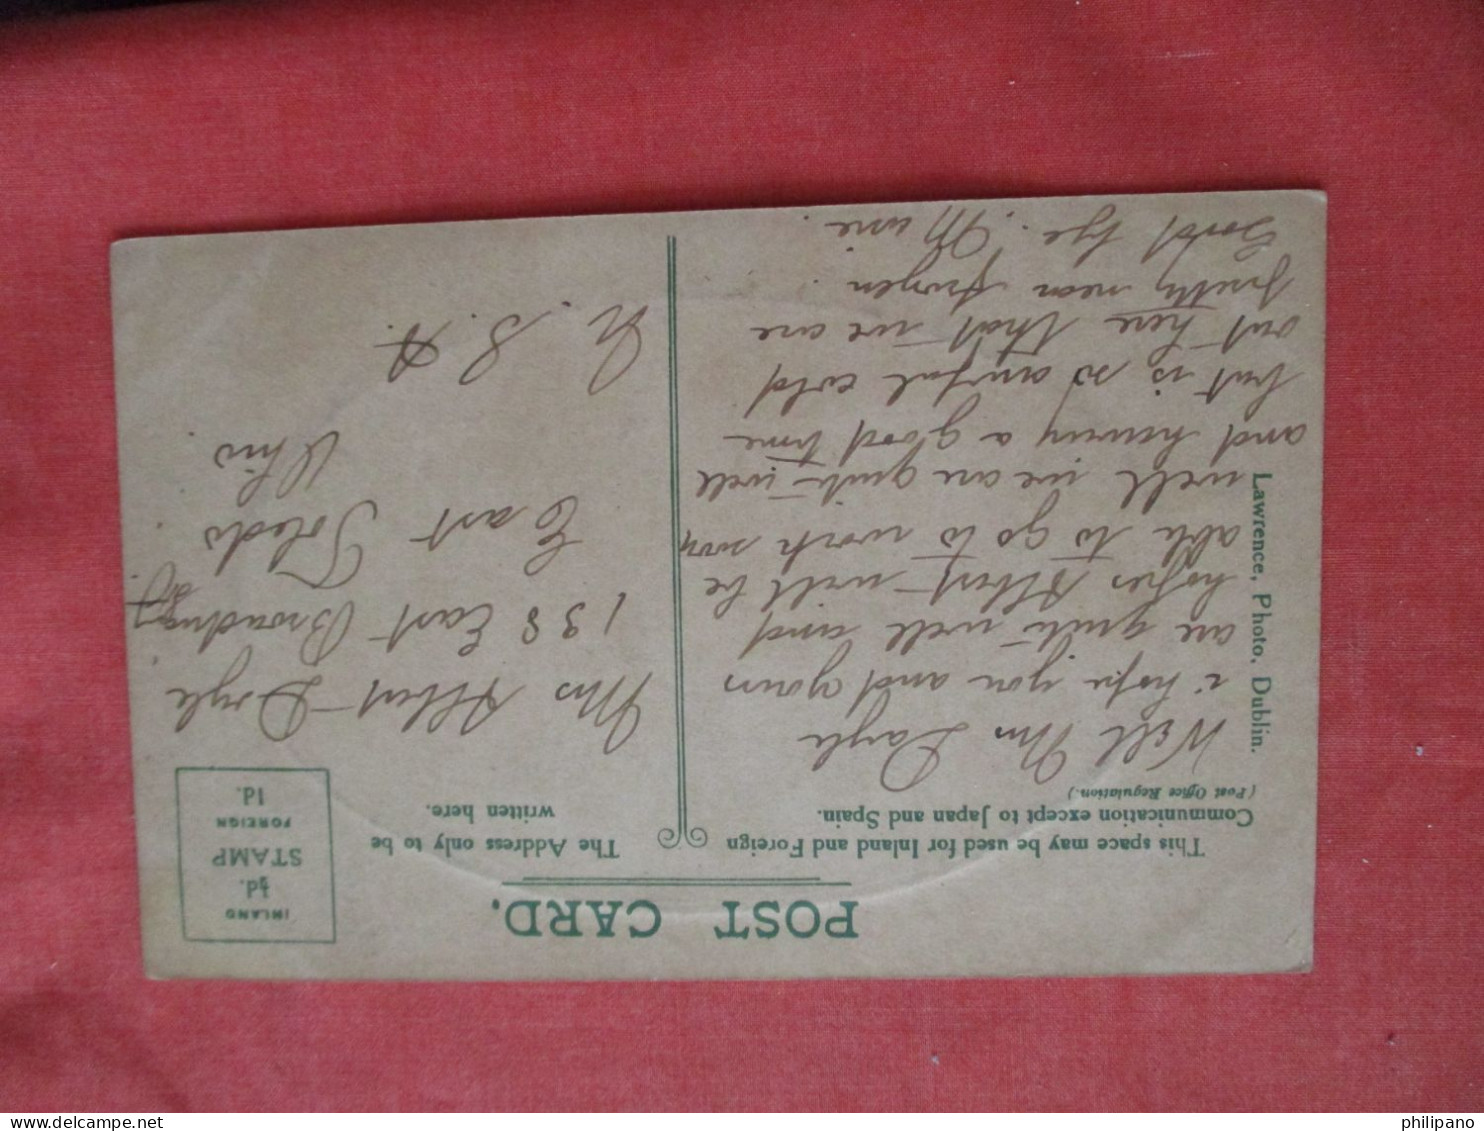 POST CARD.
This space may be used for Inland and Foreign
Communication except to Japan and Spain.
(Post Office Regulation.)
Well Mrs Doyle
i hope you and yours
are quite well and
hopes Albert will be
able to go to work now
well we are quite well
and having a good time
but is so awful cold
out here that we are
pretty near frozen.
Good bye. Marie.
Lawrence, Photo, Dublin.
The Address only to be
written here.
INLAND
½d.
STAMP
FOREIGN
1d.
Mrs Albert Doyle
138 East Broadway
East Toledo
Ohio
U. S. A.
philipano
philipano.com